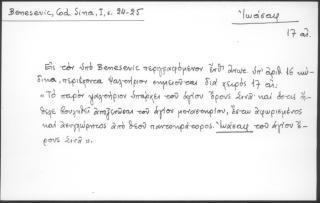 Benesevic, Cod. Sina, I, σ. 24-25
Ἰωάσαφ
17 αἰ.
Εἰς τὸν ὑπὸ Benesevic περιγραφόμενον ὑπ' ἀριθ. 16 κώ-
δικα, περιέχοντα ψαλτήριον σημειοῦται διὰ χειρὸς 17 αἰ.
« Τὸ παρὸν ψαλτήριον ὑπάρχει τοῦ ἁγίου ὄρους Σινᾶ καὶ ὅστις ἤ-
θελε βουληθῆ ἀποξενῶσαι τοῦ ἁγίου μοναστηρίου, ἔστω ἀφωρισμένος
καὶ ἀσυγχώρητος ἀπὸ Θεοῦ παντοκράτορος. Ἰωάσαφ τοῦ ἁγίου ὄ-
ρους Σινᾶ ».